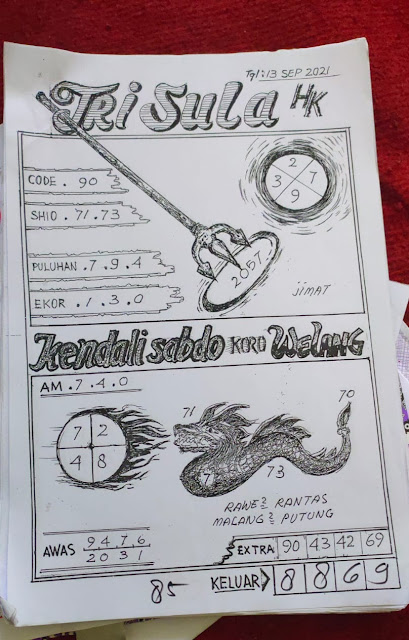 Tgl: 13 SEP 2021
TRI SULA HK
CODE . 90
SHIO . 71.73
PULUHAN . 7 . 9 . 4
EKOR . 1 . 3 . 0
2
3 7
9
2057
JIMAT
Kendali sabdo KORO WELANG
AM . 7 . 4 . 0
7 2
4 8
71
70
7
73
RAWE² RANTAS
MALANG² PUTUNG
AWAS 9 4 7 6
2 0 3 1
EXTRA 90 43 42 69
85
KELUAR> 8 8 6 9